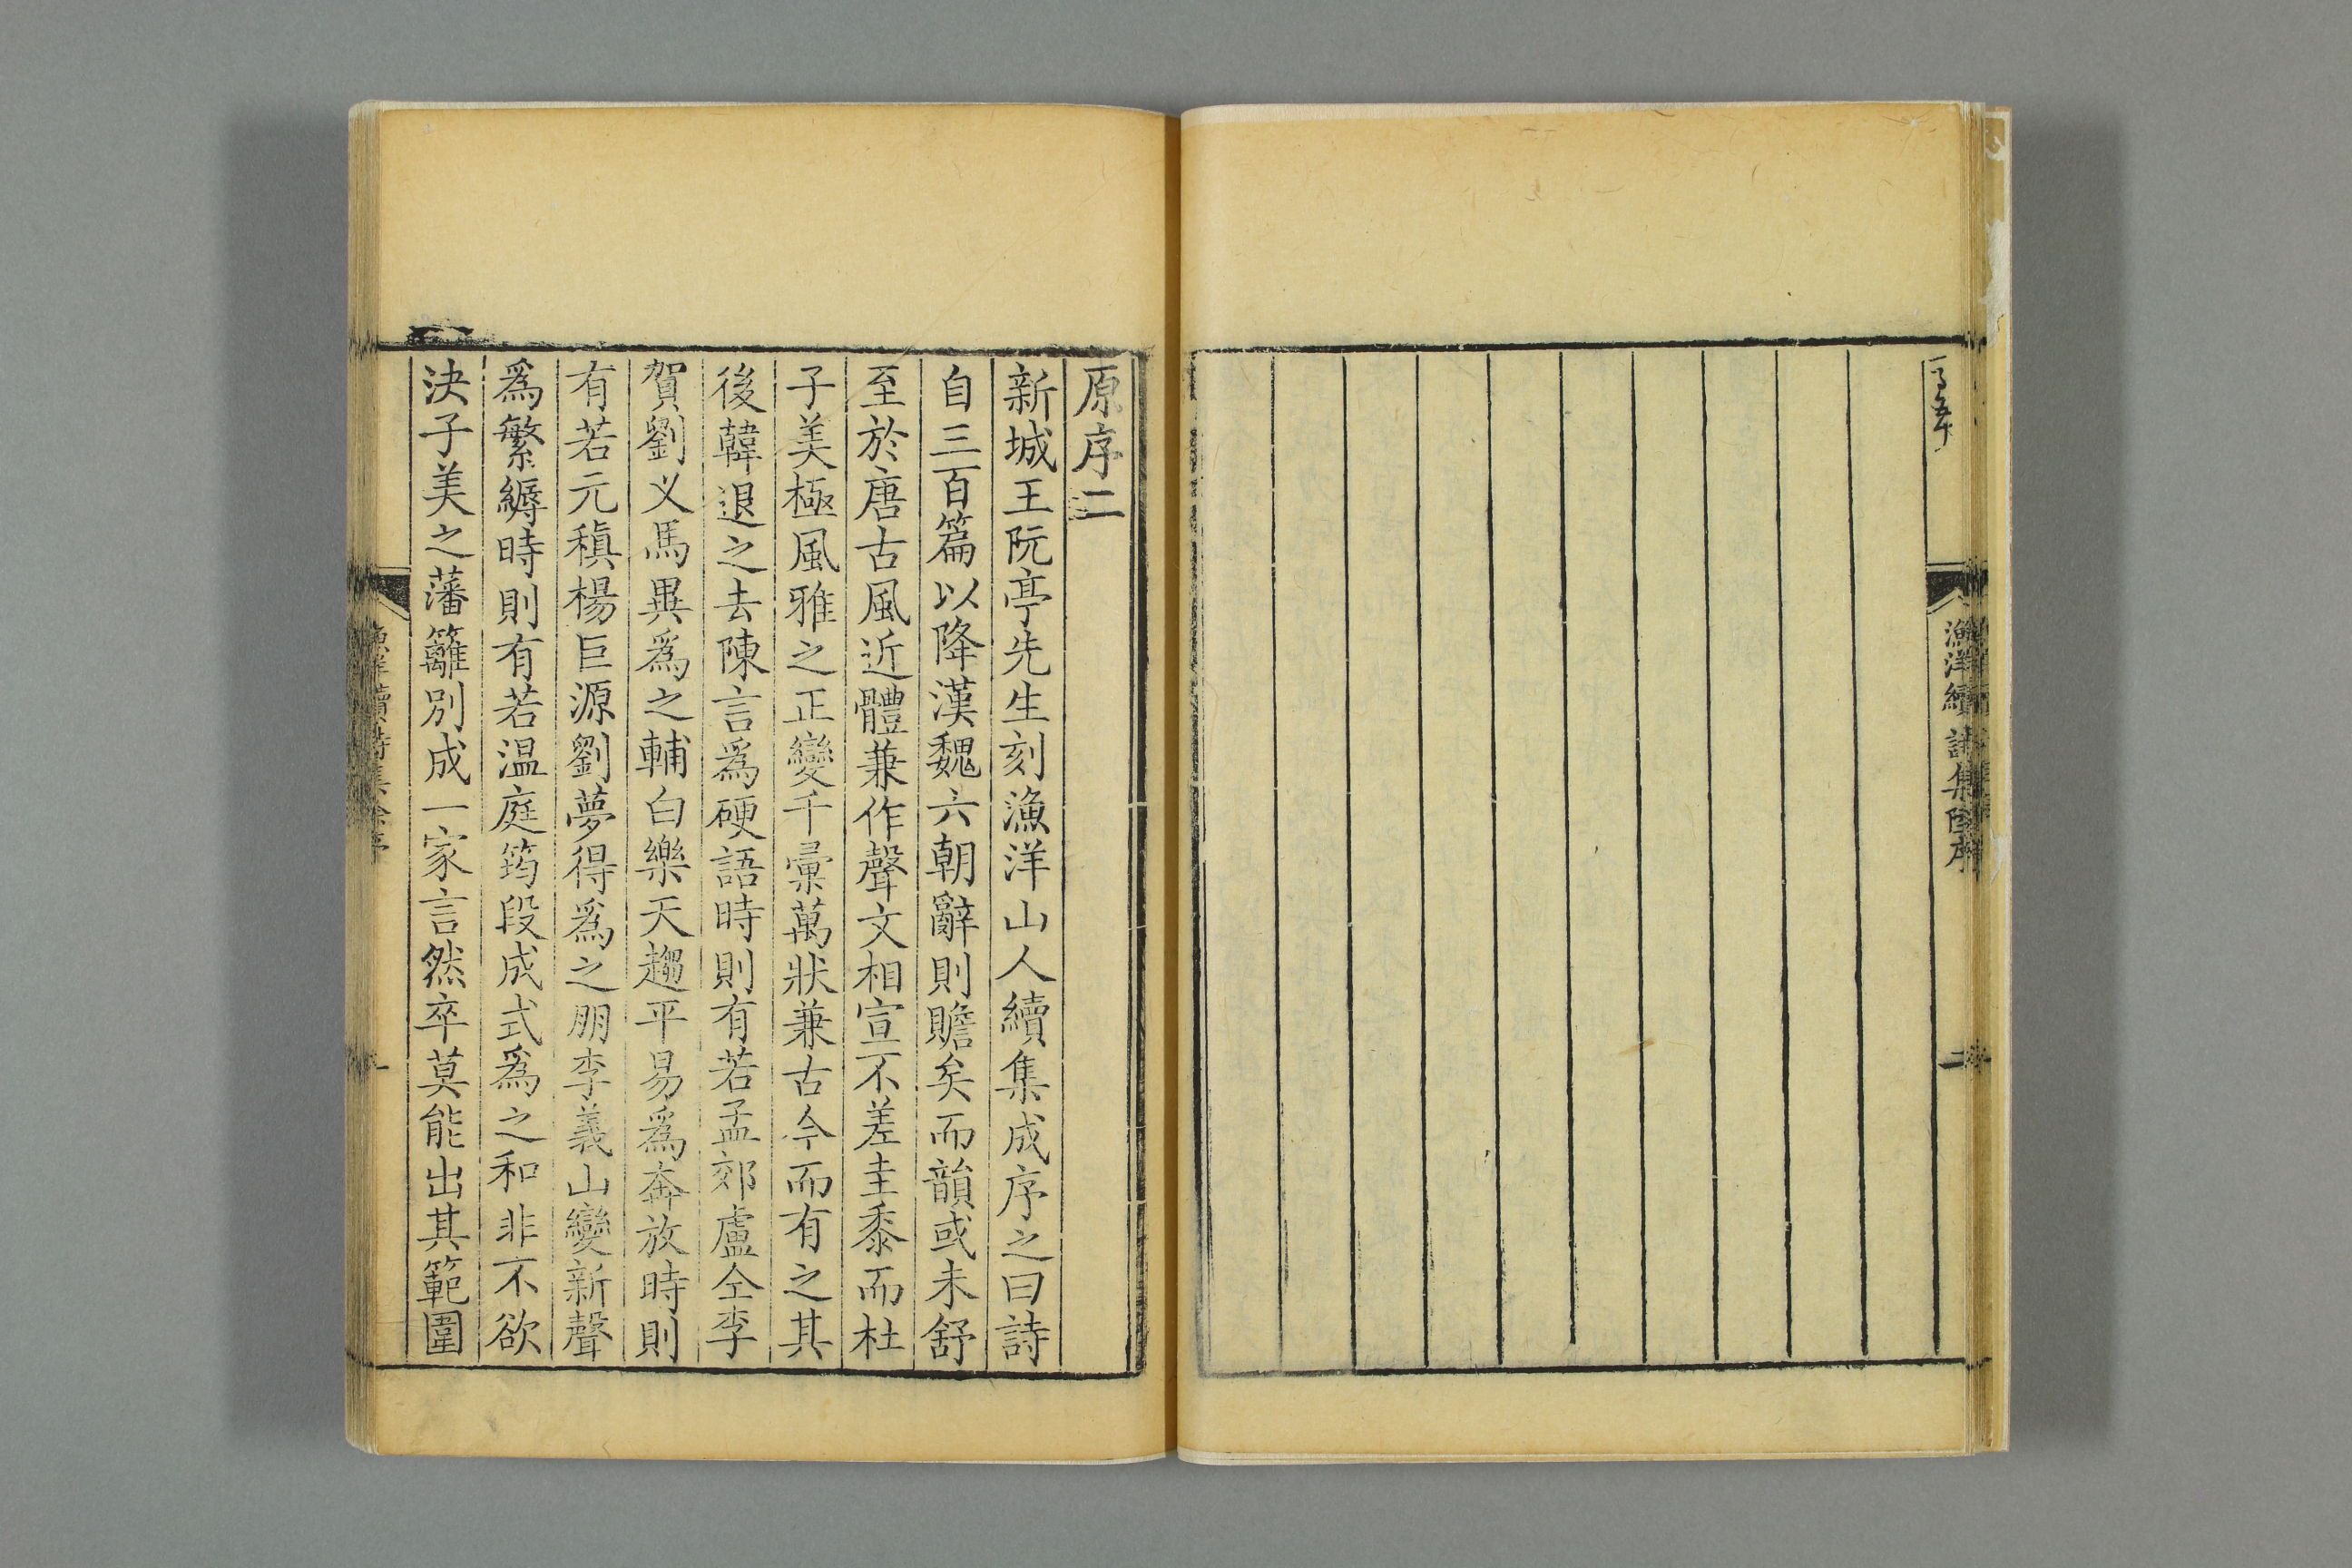 漁洋續詩集
二
原序二
新城王阮亭先生刻漁洋山人續集成序之曰詩
自三百篇以降漢魏六朝辭則贍矣而韻或未舒
至於唐古風近體兼作聲文相宣不差圭黍而杜
子美極風雅之正變千彙萬狀兼古今而有之其
後韓退之去陳言爲硬語時則有若孟郊盧仝李
賀劉义馬異爲之輔白樂天趨平易爲奔放時則
有若元稹楊巨源劉夢得爲之朋李義山變新聲
爲繁縟時則有若温庭筠段成式爲之和非不欲
決子美之藩籬別成一家言然卒莫能出其範圍